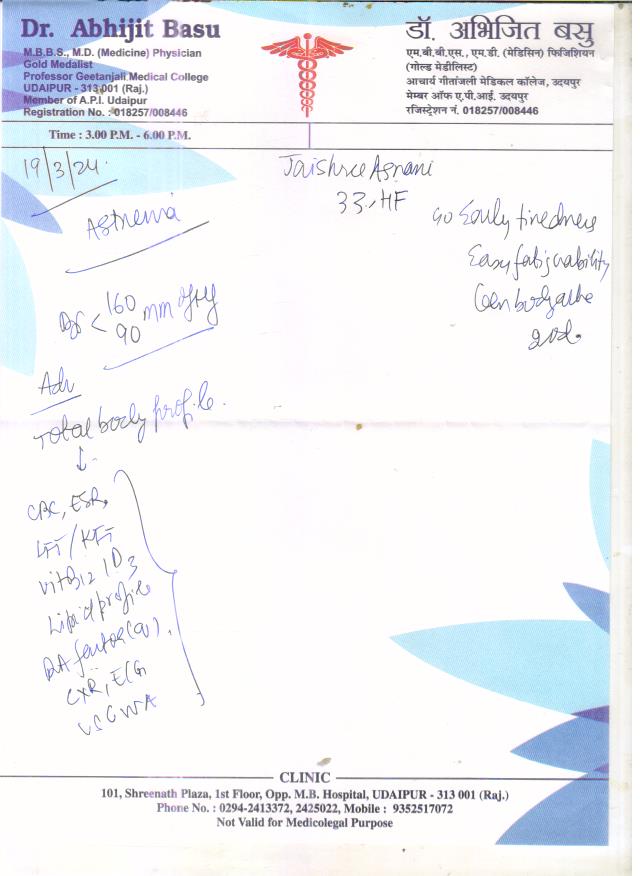 Dr. Abhijit Basu
M.B.B.S., M.D. (Medicine) Physician
Gold Medalist
Professor Geetanjali Medical College
UDAIPUR - 313 001 (Raj.)
Member of A.P.I. Udaipur
Registration No. : 018257/008446
डॉ. अभिजित बसु
एम.बी.बी.एस., एम.डी. (मेडिसिन) फिजिशियन
(गोल्ड मेडीलिस्ट)
आचार्य गीतांजली मेडिकल कॉलेज, उदयपुर
मेम्बर ऑफ ए.पी.आई. उदयपुर
रजिस्ट्रेशन नं. 018257/008446
Time : 3.00 P.M. - 6.00 P.M.
19/3/24.
Jaishree Asnani
33
Early tiredness
Easy fatiguability
Gen bodyache
Asthenia
160
90 mm of Hg
Adv
Total body profile.
CBC, ESR,
LFT / KFT
Vit B12 / D3
Lipid profile
RA factor
CXR, ECG
USG W/A
CLINIC
101, Shreenath Plaza, 1st Floor, Opp. M.B. Hospital, UDAIPUR - 313 001 (Raj.)
Phone No. : 0294-2413372, 2425022, Mobile : 9352517072
Not Valid for Medicolegal Purpose